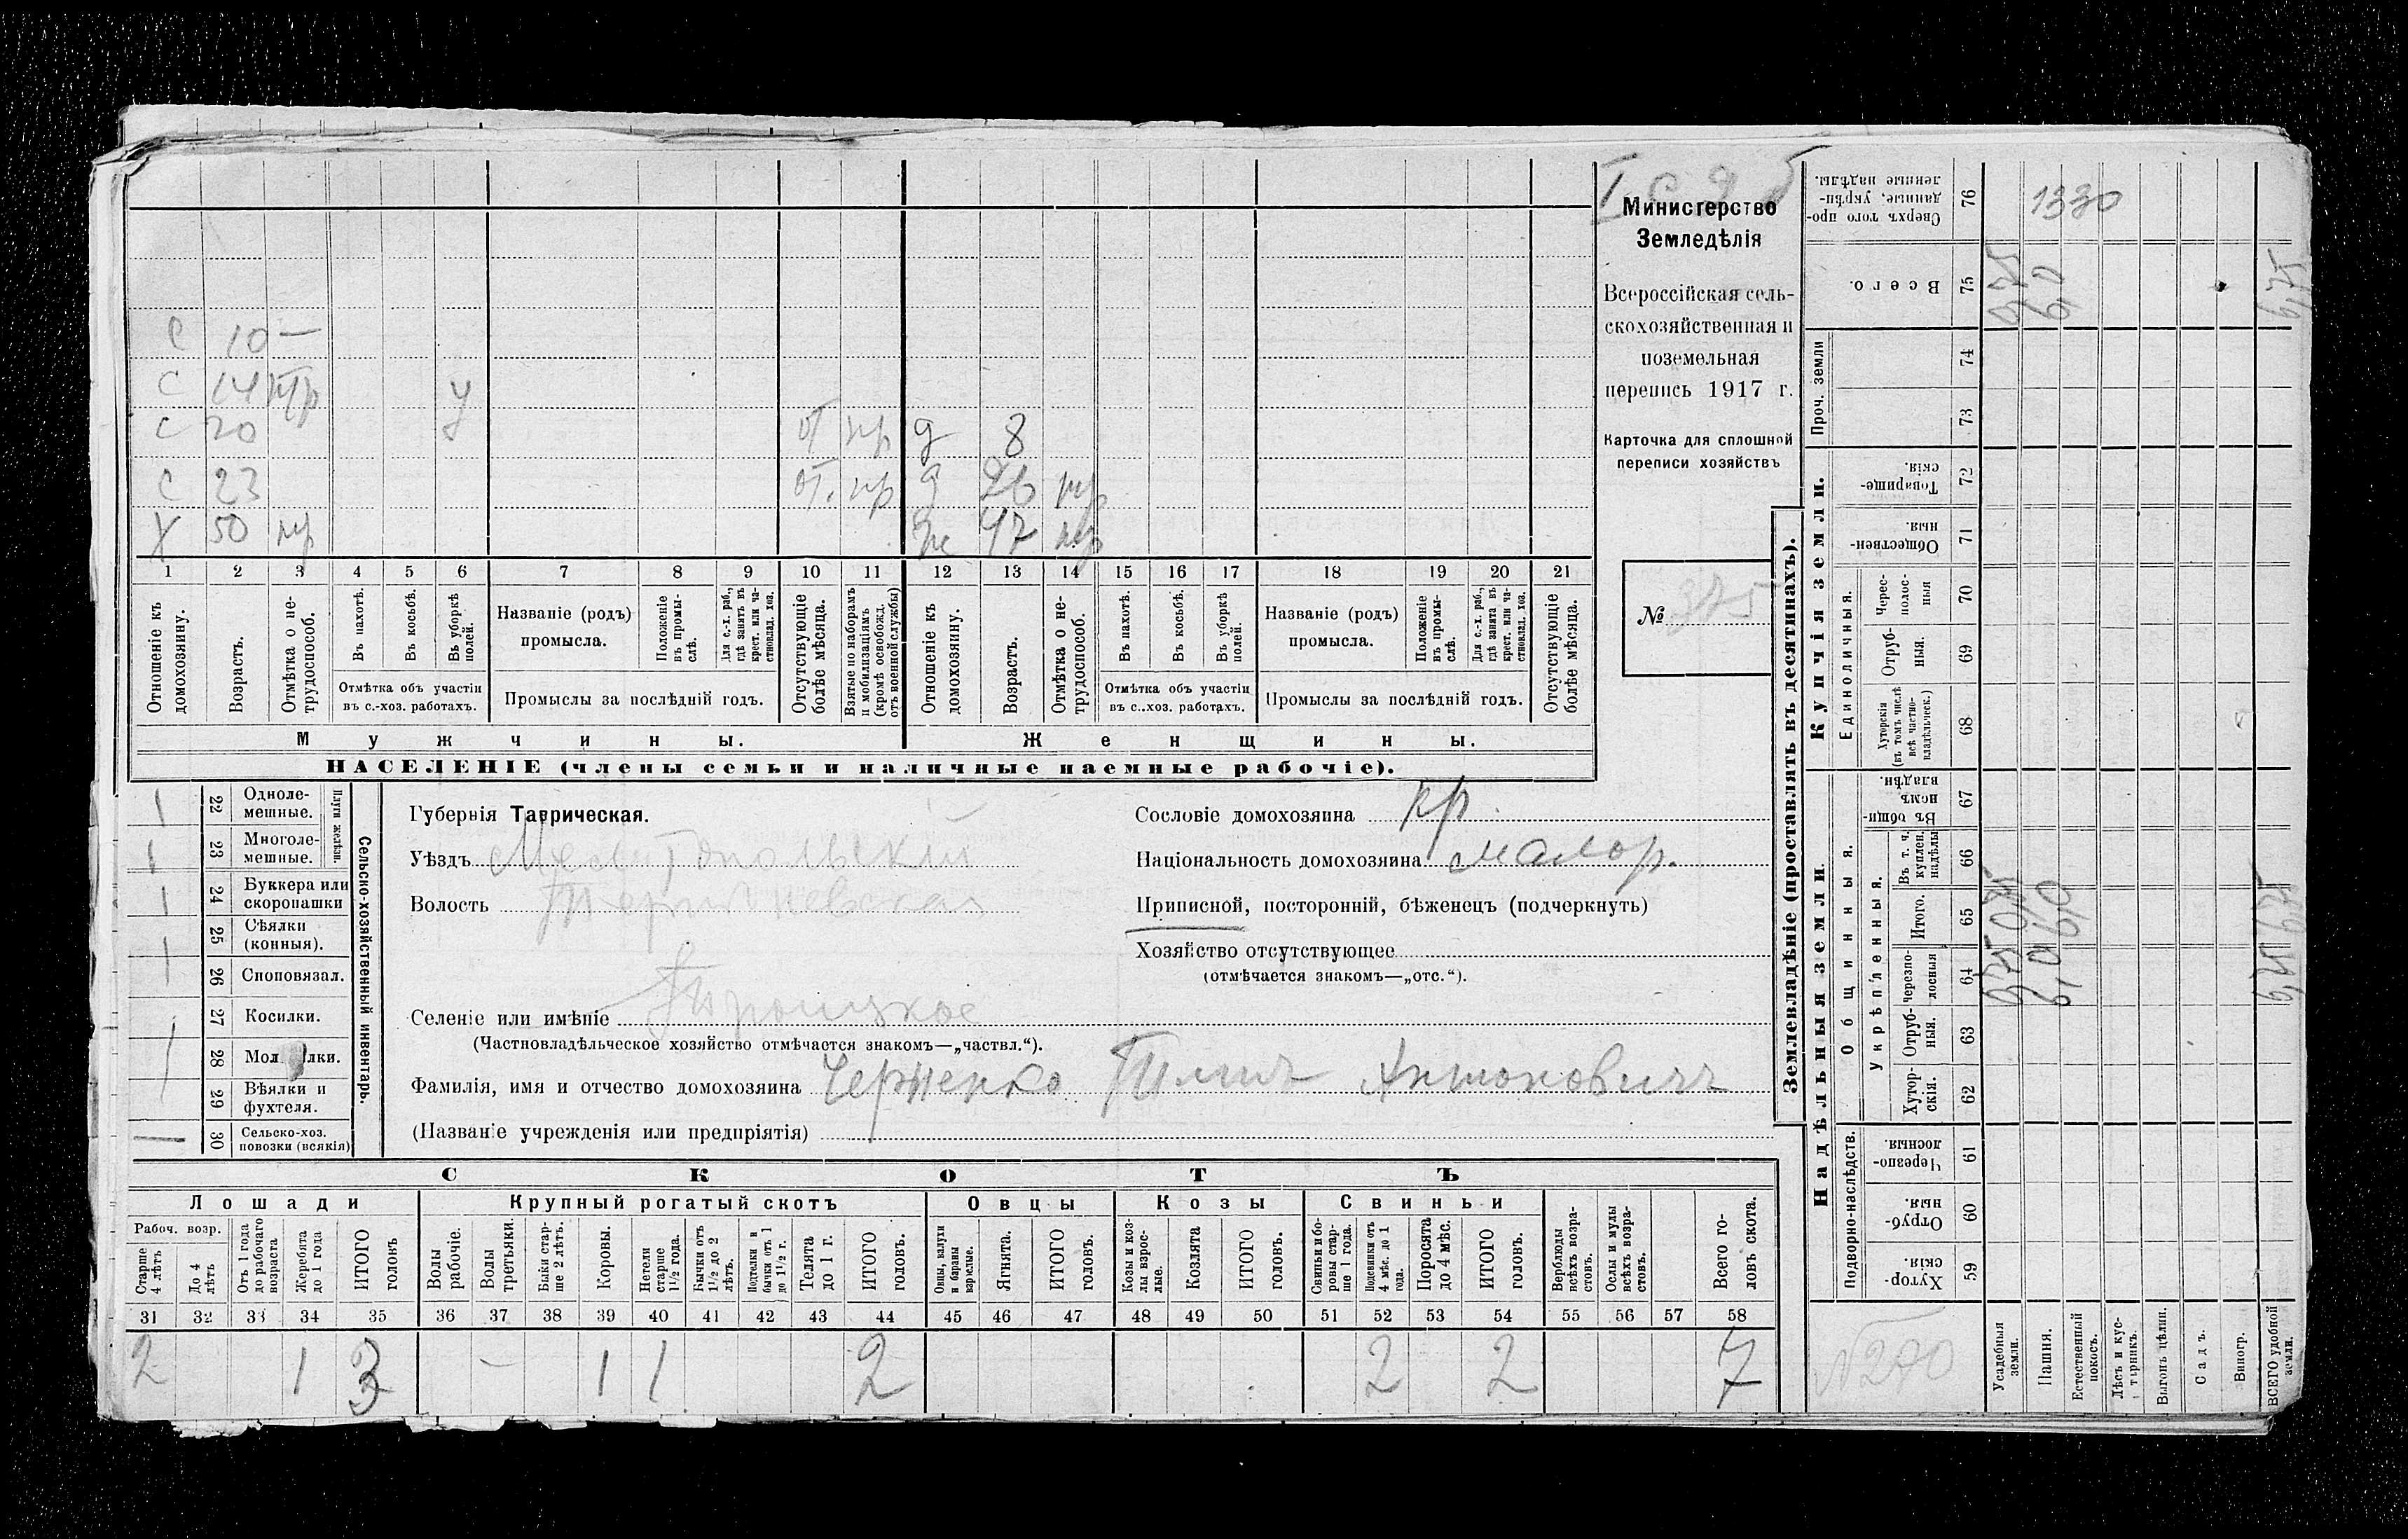 Министерство
Земледѣлія
Всероссійская сель-
скохозяйственная и
поземельная
перепись 1917 г.
Карточка для сплошной
переписи хозяйствъ
№ 375
С 10 —
С 14 нтр у
С 20 у от пр д 8
С 23 от. пр д
х 50 ж 47
1 2 3 4 5 6 7 8 9 10 11 12 13 14 15 16 17 18 19 20 21
Отношеніе къ домохозяину.
Возрастъ.
Отмѣтка о не-трудоспособ.
Въ пахотѣ.
Въ косьбѣ.
Въ уборкѣ полей.
Отмѣтка объ участіи въ с.-хоз. работахъ.
Названіе (родъ) промысла.
Положеніе въ промы-слѣ.
Для с.-х. раб., гдѣ занятъ въ крест. или ча-стновлад. хоз.
Промыслы за послѣдній годъ.
Отсутствующіе болѣе мѣсяца.
Взятые по наборамъ и мобилизаціямъ (кромѣ освобожд. отъ военной службы)
Отношеніе къ домохозяину.
Возрастъ.
Отмѣтка о не-трудоспособ.
Въ пахотѣ.
Въ косьбѣ.
Въ уборкѣ полей.
Отмѣтка объ участіи въ с.-хоз. работахъ.
Названіе (родъ) промысла.
Положеніе въ промы-слѣ.
Для с.-х. раб., гдѣ занята въ крест. или ча-стновлад. хоз.
Промыслы за послѣдній годъ.
Отсутствующіе болѣе мѣсяца.
Мужчины. Женщины.
НАСЕЛЕНІЕ (члены семьи и наличные наемные рабочіе).
Сельско-хозяйственный инвентарь.
Плуги желѣзн.
1 22 Одноле-мешные.
1 23 Многоле-мешные.
1 24 Буккера или скоропашки
1 25 Сѣялки (конныя).
26 Сноповязал.
27 Косилки.
28 Мол лки.
29 Вѣялки и фухтеля.
30 Сельско-хоз. повозки (всякія)
Губернія Таврическая.
Уѣздъ Мелитопольскій
Волость
Селеніе или имѣніе Троицкое
(Частновладѣльческое хозяйство отмѣчается знакомъ—„частвл.“).
Фамилія, имя и отчество домохозяина Черненко Антоновичъ
(Названіе учрежденія или предпріятія)
Сословіе домохозяина кр.
Національность домохозяина малор.
Приписной, посторонній, бѣженецъ (подчеркнуть)
Хозяйство отсутствующее
(отмѣчается знакомъ—„отс.“).
СКОТЪ
Лошади Крупный рогатый скотъ Овцы Козы Свиньи
Рабоч. возр.
Старше 4 лѣтъ
До 4 лѣтъ
Отъ 1 года до рабочаго возраста
Жеребята до 1 года
ИТОГО головъ
Волы рабочіе.
Волы третьяки.
Быки стар-ше 2 лѣтъ.
Коровы.
Нетели старше 1½ года.
Бычки отъ 1½ до 2 лѣтъ.
Подтелки и бычки отъ 1 до 1½ г.
Телята до 1 г.
ИТОГО головъ.
Овцы, валухи и бараны взрослые.
Ягнята.
ИТОГО головъ.
Козы и коз-лы взрос-лые.
Козлята
ИТОГО головъ.
Свиньи и бо-ровы стар-ше 1 года.
Подсвинки отъ 4 мѣс. до 1 года.
Поросята до 4 мѣс.
ИТОГО головъ.
Верблюды всѣхъ возра-стовъ.
Ослы и мулы всѣхъ возра-стовъ.
Всего го-ловъ скота.
31 32 33 34 35 36 37 38 39 40 41 42 43 44 45 46 47 48 49 50 51 52 53 54 55 56 57 58
2 1 3 – 1 1 2 2 2 7
Землевладѣніе (проставлять въ десятинахъ).
Надѣльныя земли. Купчія земли. Проч. земли
Подворно-наслѣдств. Общинныя. Единоличныя.
Укрѣпленныя.
Хутор-скія. 59
Отруб-ныя. 60
Черезпо-лосныя. 61
Хутор-скія. 62
Отруб-ныя. 63
черезпо-лосныя 64
Итого. 65
Въ т. ч. куплен. надѣлы 66
Въ общи-номъ владѣн. 67
Хуторскія (въ томъ числѣ всѣ частно-владѣльческ.) 68
Отруб-ныя. 69
Черес-полос-ныя 70
Обществен-ныя. 71
Товарище-скія. 72
73
74
Всего. 75
Сверхъ того про-данные, укрѣп-ленные надѣлы. 76
Усадебныя земли. 0,75 0,75 0,75
Пашня. 6,0 6,0 6,0 1330
Естественный покосъ.
Лѣсъ и кус-тарникъ.
Выгонъ цѣлин.
Садъ.
Виногр.
ВСЕГО удобной земли. 6,75 6,75 6,75
№ 270